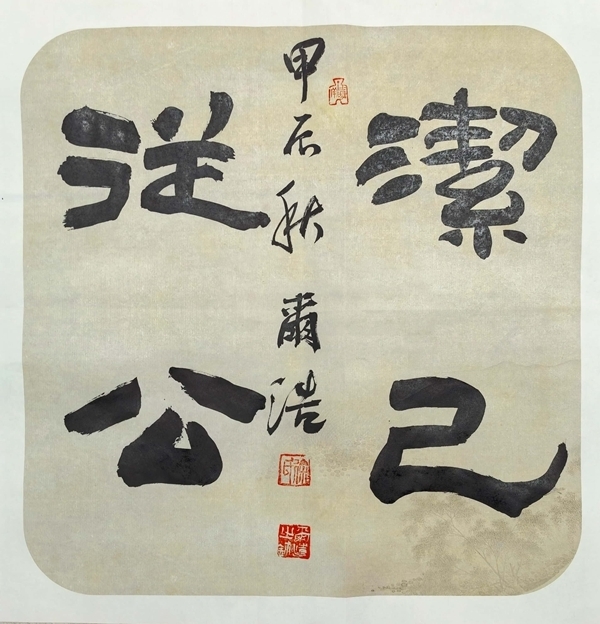 潔己
從公
甲辰秋爾浩